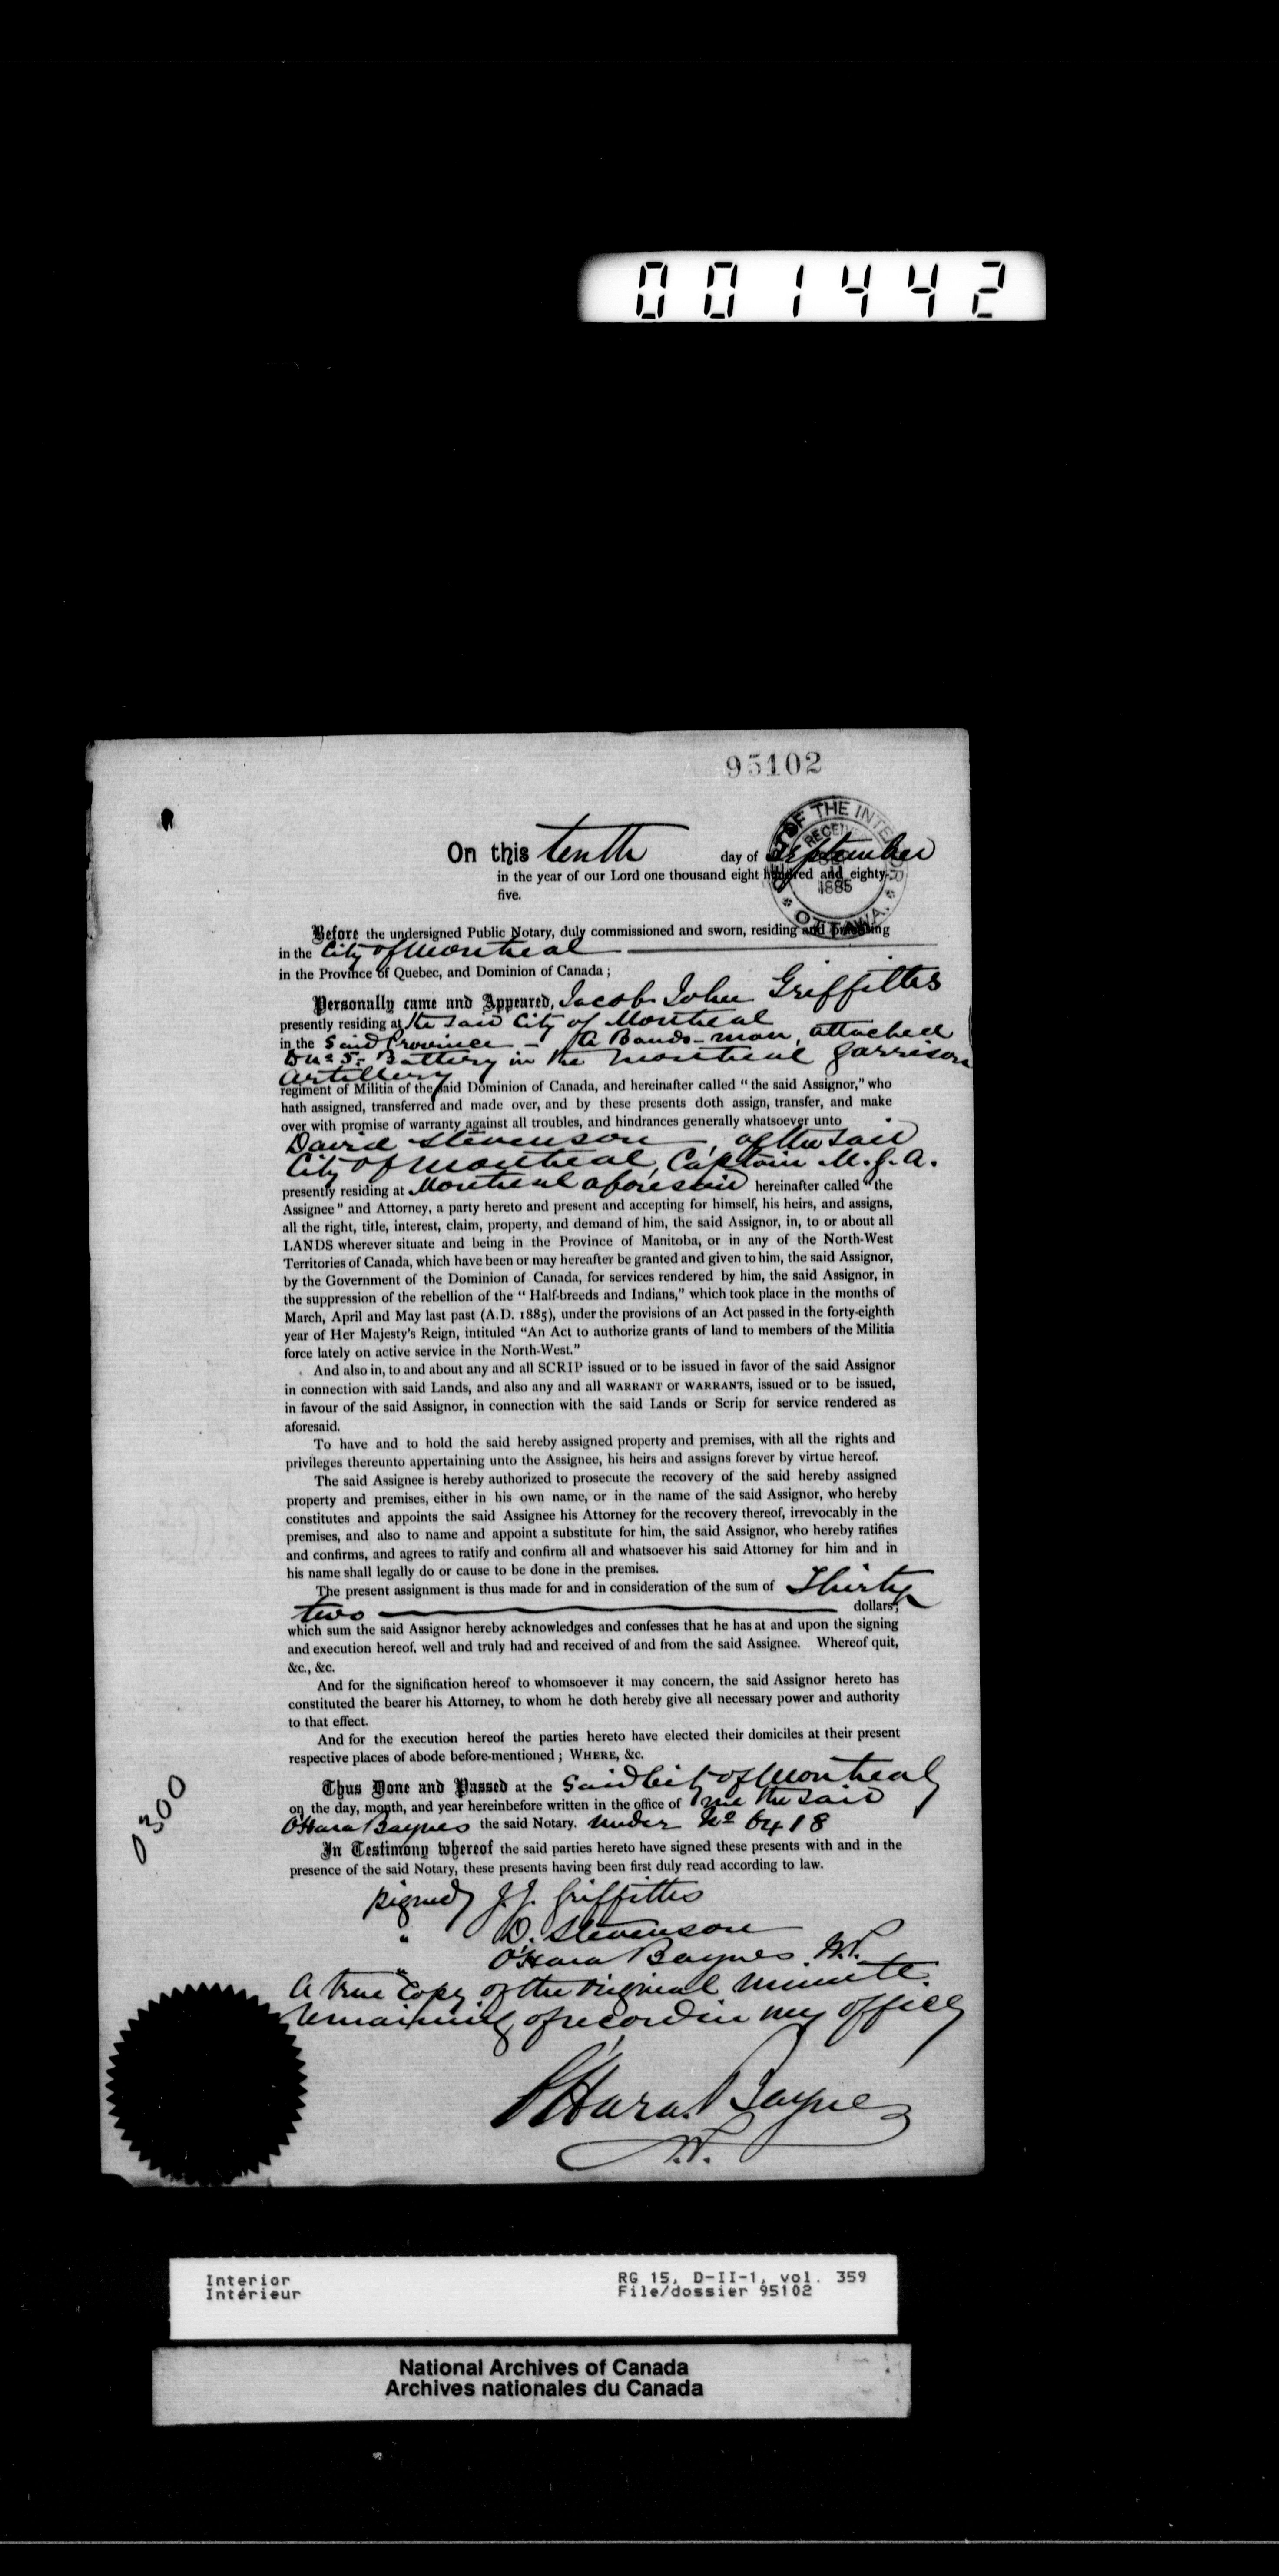 001442
95102
On this tenth day of September
in the year of our Lord one thousand eight hundred and eighty-
five.
DEPT OF THE INTERIOR
RECEIVED
1885
* OTTAWA. *
Before the undersigned Public Notary, duly commissioned and sworn, residing and practising
in the City of Montreal
in the Province of Quebec, and Dominion of Canada ;
Personally came and Appeared, Jacob John Griffiths
presently residing at the said City of Montreal
in the Said Province - A Bands-man, attached
5 Battery in the Montreal Garrison
Artillery
regiment of Militia of the said Dominion of Canada, and hereinafter called "the said Assignor," who
hath assigned, transferred and made over, and by these presents doth assign, transfer, and make
over with promise of warranty against all troubles, and hindrances generally whatsoever unto
David Stevenson, of the said
City of Montreal, Captain M.G.A.
presently residing at Montreal aforesaid hereinafter called "the
Assignee" and Attorney, a party hereto and present and accepting for himself, his heirs, and assigns,
all the right, title, interest, claim, property, and demand of him, the said Assignor, in, to or about all
LANDS wherever situate and being in the Province of Manitoba, or in any of the North-West
Territories of Canada, which have been or may hereafter be granted and given to him, the said Assignor,
by the Government of the Dominion of Canada, for services rendered by him, the said Assignor, in
the suppression of the rebellion of the " Half-breeds and Indians," which took place in the months of
March, April and May last past (A.D. 1885), under the provisions of an Act passed in the forty-eighth
year of Her Majesty's Reign, intituled "An Act to authorize grants of land to members of the Militia
force lately on active service in the North-West."
And also in, to and about any and all SCRIP issued or to be issued in favor of the said Assignor
in connection with said Lands, and also any and all WARRANT or WARRANTS, issued or to be issued,
in favour of the said Assignor, in connection with the said Lands or Scrip for service rendered as
aforesaid.
To have and to hold the said hereby assigned property and premises, with all the rights and
privileges thereunto appertaining unto the Assignee, his heirs and assigns forever by virtue hereof.
The said Assignee is hereby authorized to prosecute the recovery of the said hereby assigned
property and premises, either in his own name, or in the name of the said Assignor, who hereby
constitutes and appoints the said Assignee his Attorney for the recovery thereof, irrevocably in the
premises, and also to name and appoint a substitute for him, the said Assignor, who hereby ratifies
and confirms, and agrees to ratify and confirm all and whatsoever his said Attorney for him and in
his name shall legally do or cause to be done in the premises.
The present assignment is thus made for and in consideration of the sum of Thirty
two dollars;
which sum the said Assignor hereby acknowledges and confesses that he has at and upon the signing
and execution hereof, well and truly had and received of and from the said Assignee. Whereof quit,
&c., &c.
And for the signification hereof to whomsoever it may concern, the said Assignor hereto has
constituted the bearer his Attorney, to whom he doth hereby give all necessary power and authority
to that effect.
And for the execution hereof the parties hereto have elected their domiciles at their present
respective places of abode before-mentioned ; WHERE, &c.
Thus Done and Passed at the Said City of Montreal
on the day, month, and year hereinbefore written in the office of me the said
O'Hara Baynes the said Notary. Under No 6418
In Testimony whereof the said parties hereto have signed these presents with and in the
presence of the said Notary, these presents having been first duly read according to law.
0300
Signed J.J. Griffiths
" D. Stevenson
" O'Hara Baynes N.P.
A true Copy of the Original minute
remaining of record in my office
O'Hara Baynes
N.P.
Interior RG 15, D-II-1, vol. 359
Intérieur File/dossier 95102
National Archives of Canada
Archives nationales du Canada